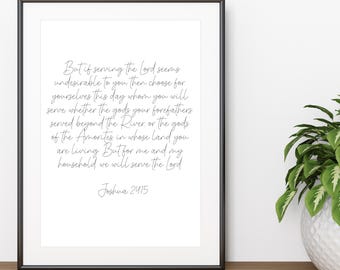 But if serving the Lord seems
undesirable to you then choose for
yourselves this day whom you will
serve whether the gods your forefathers
served beyond the River or the gods
of the Amorites in whose land you
are living But for me and my
household we will serve the Lord
Joshua 24:15